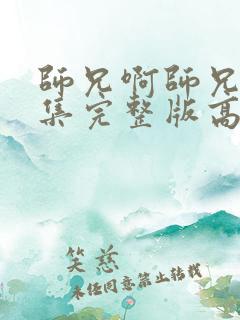 師兄啊師兄
集完整版高
笑慈
未经同意禁止转载